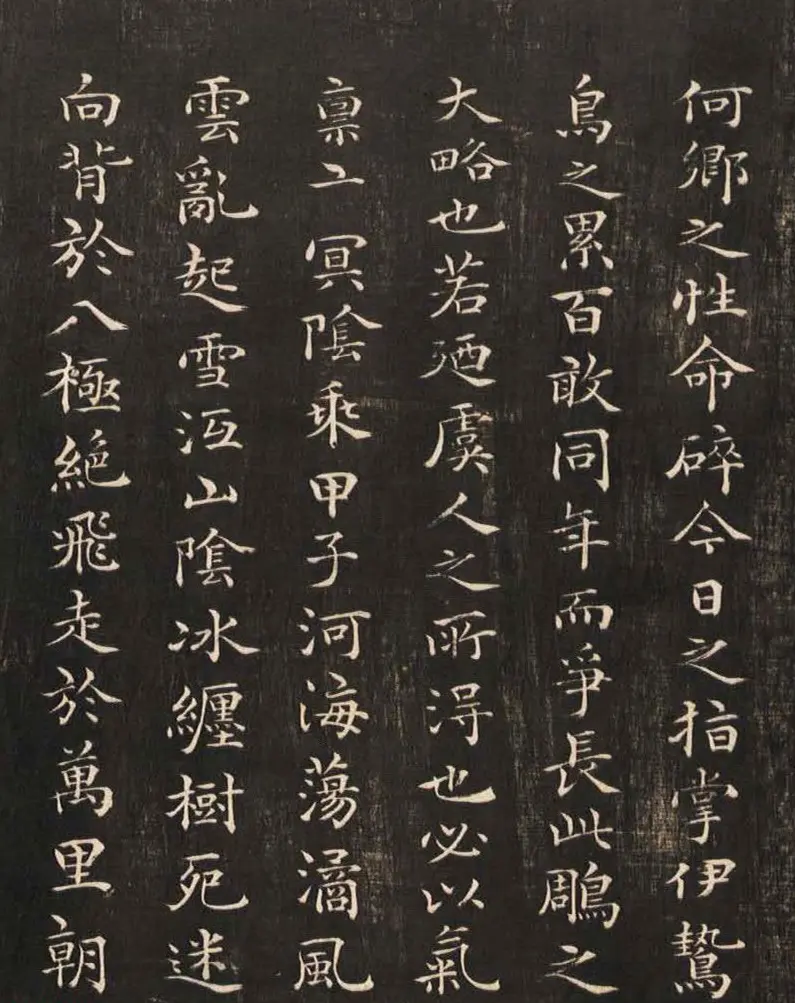 何鄉之性命碎今日之指掌伊鷙
鳥之累百敢同年而爭長此雕之
大略也若迺虞人之所得也必以氣
禀二冥陰乘甲子河海蕩潏風
雲亂起雪沍山陰冰纏樹死迷
向背於八極絕飛走於萬里朝